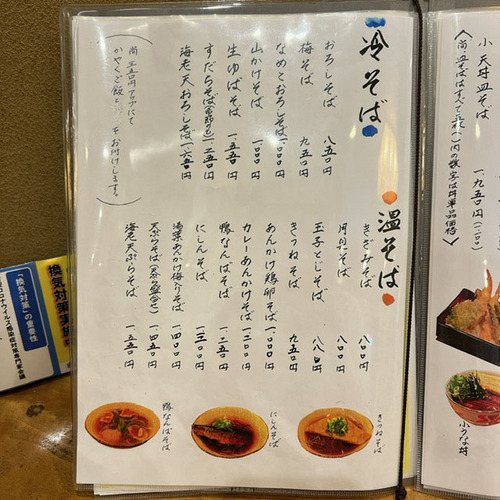 小天丼皿そば 一、九五〇円
尚、皿そばはすべて
冷そば
おろしそば 八五〇円
梅そば 九五〇円
なめこおろしそば 一、〇〇〇円
山かけそば 一、〇〇〇円
生ゆばそば 一、一五〇円
すだちそば 一、二五〇円
海老天おろしそば 一、六五〇円
かやくご飯
お付けします。
温そば
きざみそば 八〇〇円
月見そば 八〇〇円
玉子とじそば 八八〇円
きつねそば 九五〇円
あんかけ鶏卵そば 一、〇〇〇円
カレーあんかけそば
鴨なんばそば 一、二五〇円
にしんそば 一、三〇〇円
湯葉あんかけ梅入りそば 一、四〇〇円
天ぷらそば(天ぷら盛合せ) 一、四五〇円
海老天ぷらそば 一、五五〇円
きつねそば
にしんそば
鴨なんばそば
小うな丼
換気対策実施
「換気対策」の重要性
コロナウイルス感染症対策専門家会議